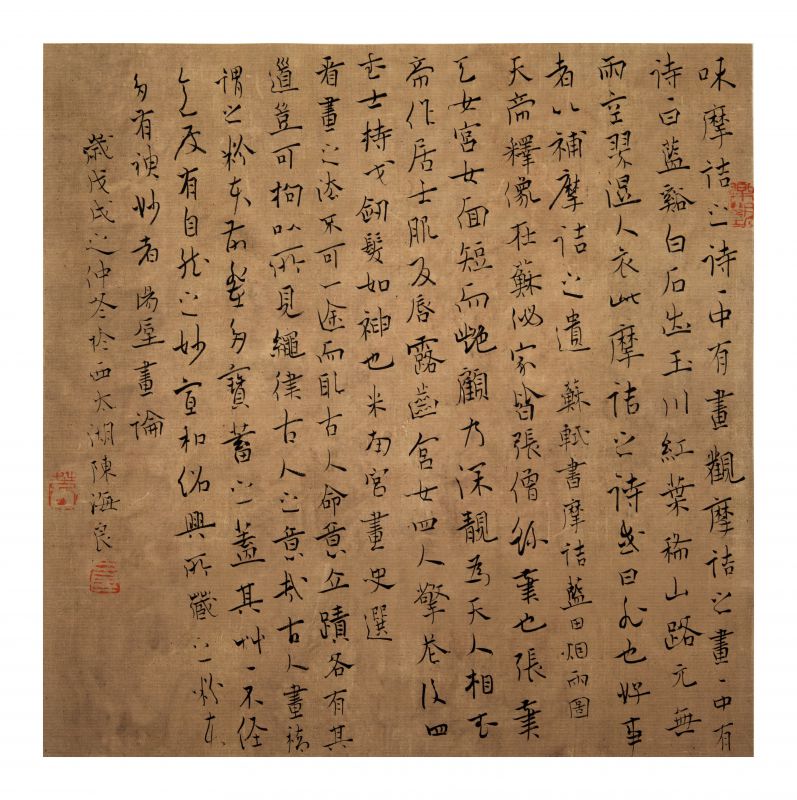 味摩詰之詩〻中有畫觀摩詰之畫〻中有
詩曰藍谿白石出玉川紅葉稀山路元無
雨空翠溼人衣此摩詰之詩或曰非也好事
者以補摩詰之遺 蘇軾書摩詰藍田烟雨圖
天帝釋像在蘇泌家皆張僧繇筆也張筆
天女宮女面短而艷顧乃深靚為天人相武
帝作居士服反唇露齒宮女四人擎花後四
武士持戈劒髮如神也米南宮畫史選
看畫之法不可一途而取古人命意立蹟各有其
道豈可拘以所見繩律古人之意哉古人畫稿
謂之粉本前輩多寶蓄之蓋其艸〻不經
意處有自然之妙宣和紹興所藏之粉本
多有神妙者湯垕畫論
歲戊戌之仲冬於西太湖陳海良